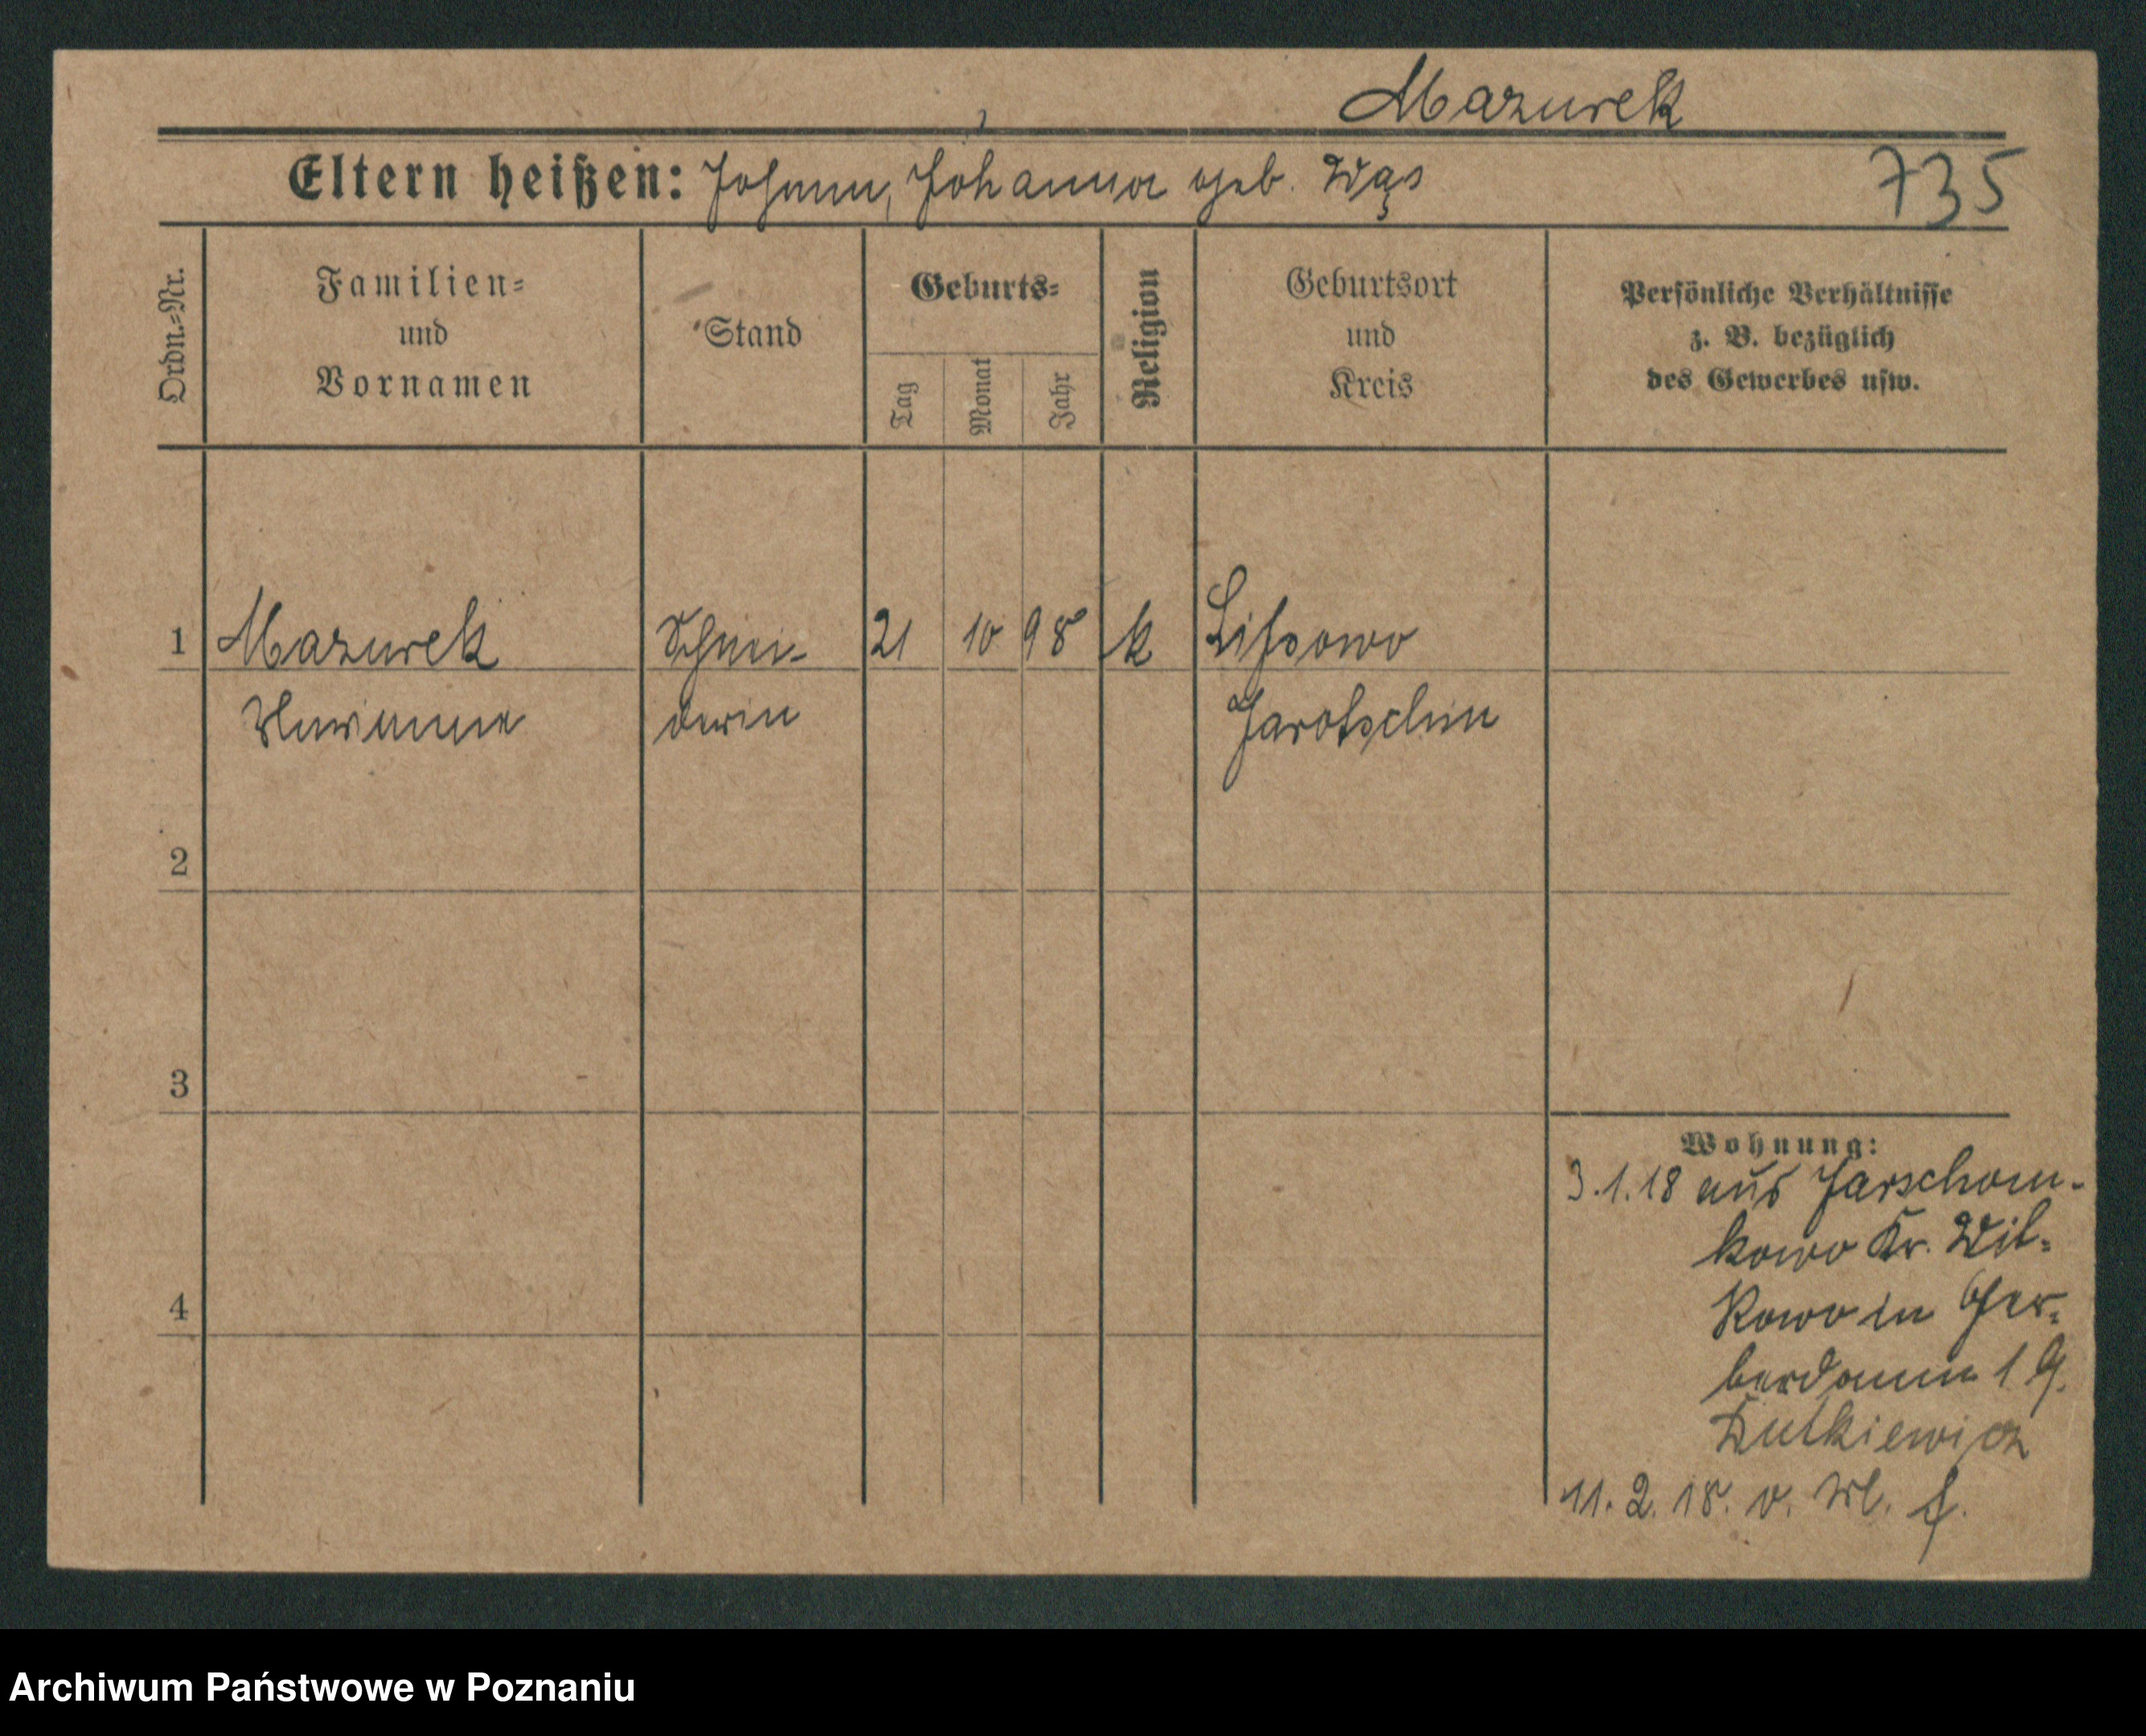 Mazurek
Eltern heißen: Johann, Johanna geb. Wąs
735
Ordn.=Nr.
Familien=
und
Vornamen
Stand
Geburts=
Tag
Monat
Jahr
Religion
Geburtsort
und
Kreis
Persönliche Verhältnisse
z. B. bezüglich
des Gewerbes usw.
1 Mazurek Schnei- 21 10 98 k Lissowo
Marianne derin Jarotschin
2
3
4
Wohnung:
3.1.18 aus Jarschom-
kowo Kr. Wit-
kowo in Ger-
berdamm 1 G.
Dutkiewicz
11.2.18. v.
Archiwum Państwowe w Poznaniu